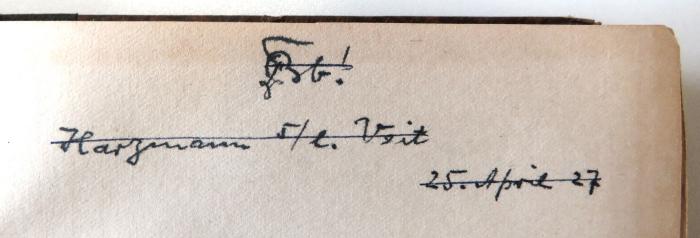 Harzmann s/l. Veit
25. April 27